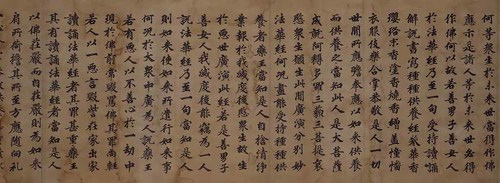 何等眾生於未來世當得作佛
應示是諸人等於未來世必得
作佛何以故若善男子善女人
於法華經乃至一句受持讀誦
解說書寫種種供養經卷華香
瓔珞末香塗香燒香繒蓋幢幡
衣服伎樂合掌恭敬是人一切
世間所應瞻奉應以如來供養
而供養之當知此人是大菩薩
成就阿耨多羅三藐三菩提哀
愍眾生願生此間廣演分別妙
法華經何況盡能受持種種供
養者藥王當知是人自捨清淨
業報於我滅度後愍眾生故生
於惡世廣演此經若是善男子
善女人我滅度後能竊為一人
說法華經乃至一句當知是人
則如來使如來所遣行如來事
何況於大眾中廣為人說藥王
若有惡人以不善心於一劫中
現於佛前常毀罵佛其罪尚輕
若人以一惡言毀呰在家出家
讀誦法華經者其罪甚重藥王
其有讀誦法華經者當知是人
以佛莊嚴而自莊嚴則為如來
肩所荷擔其所至方應隨向礼